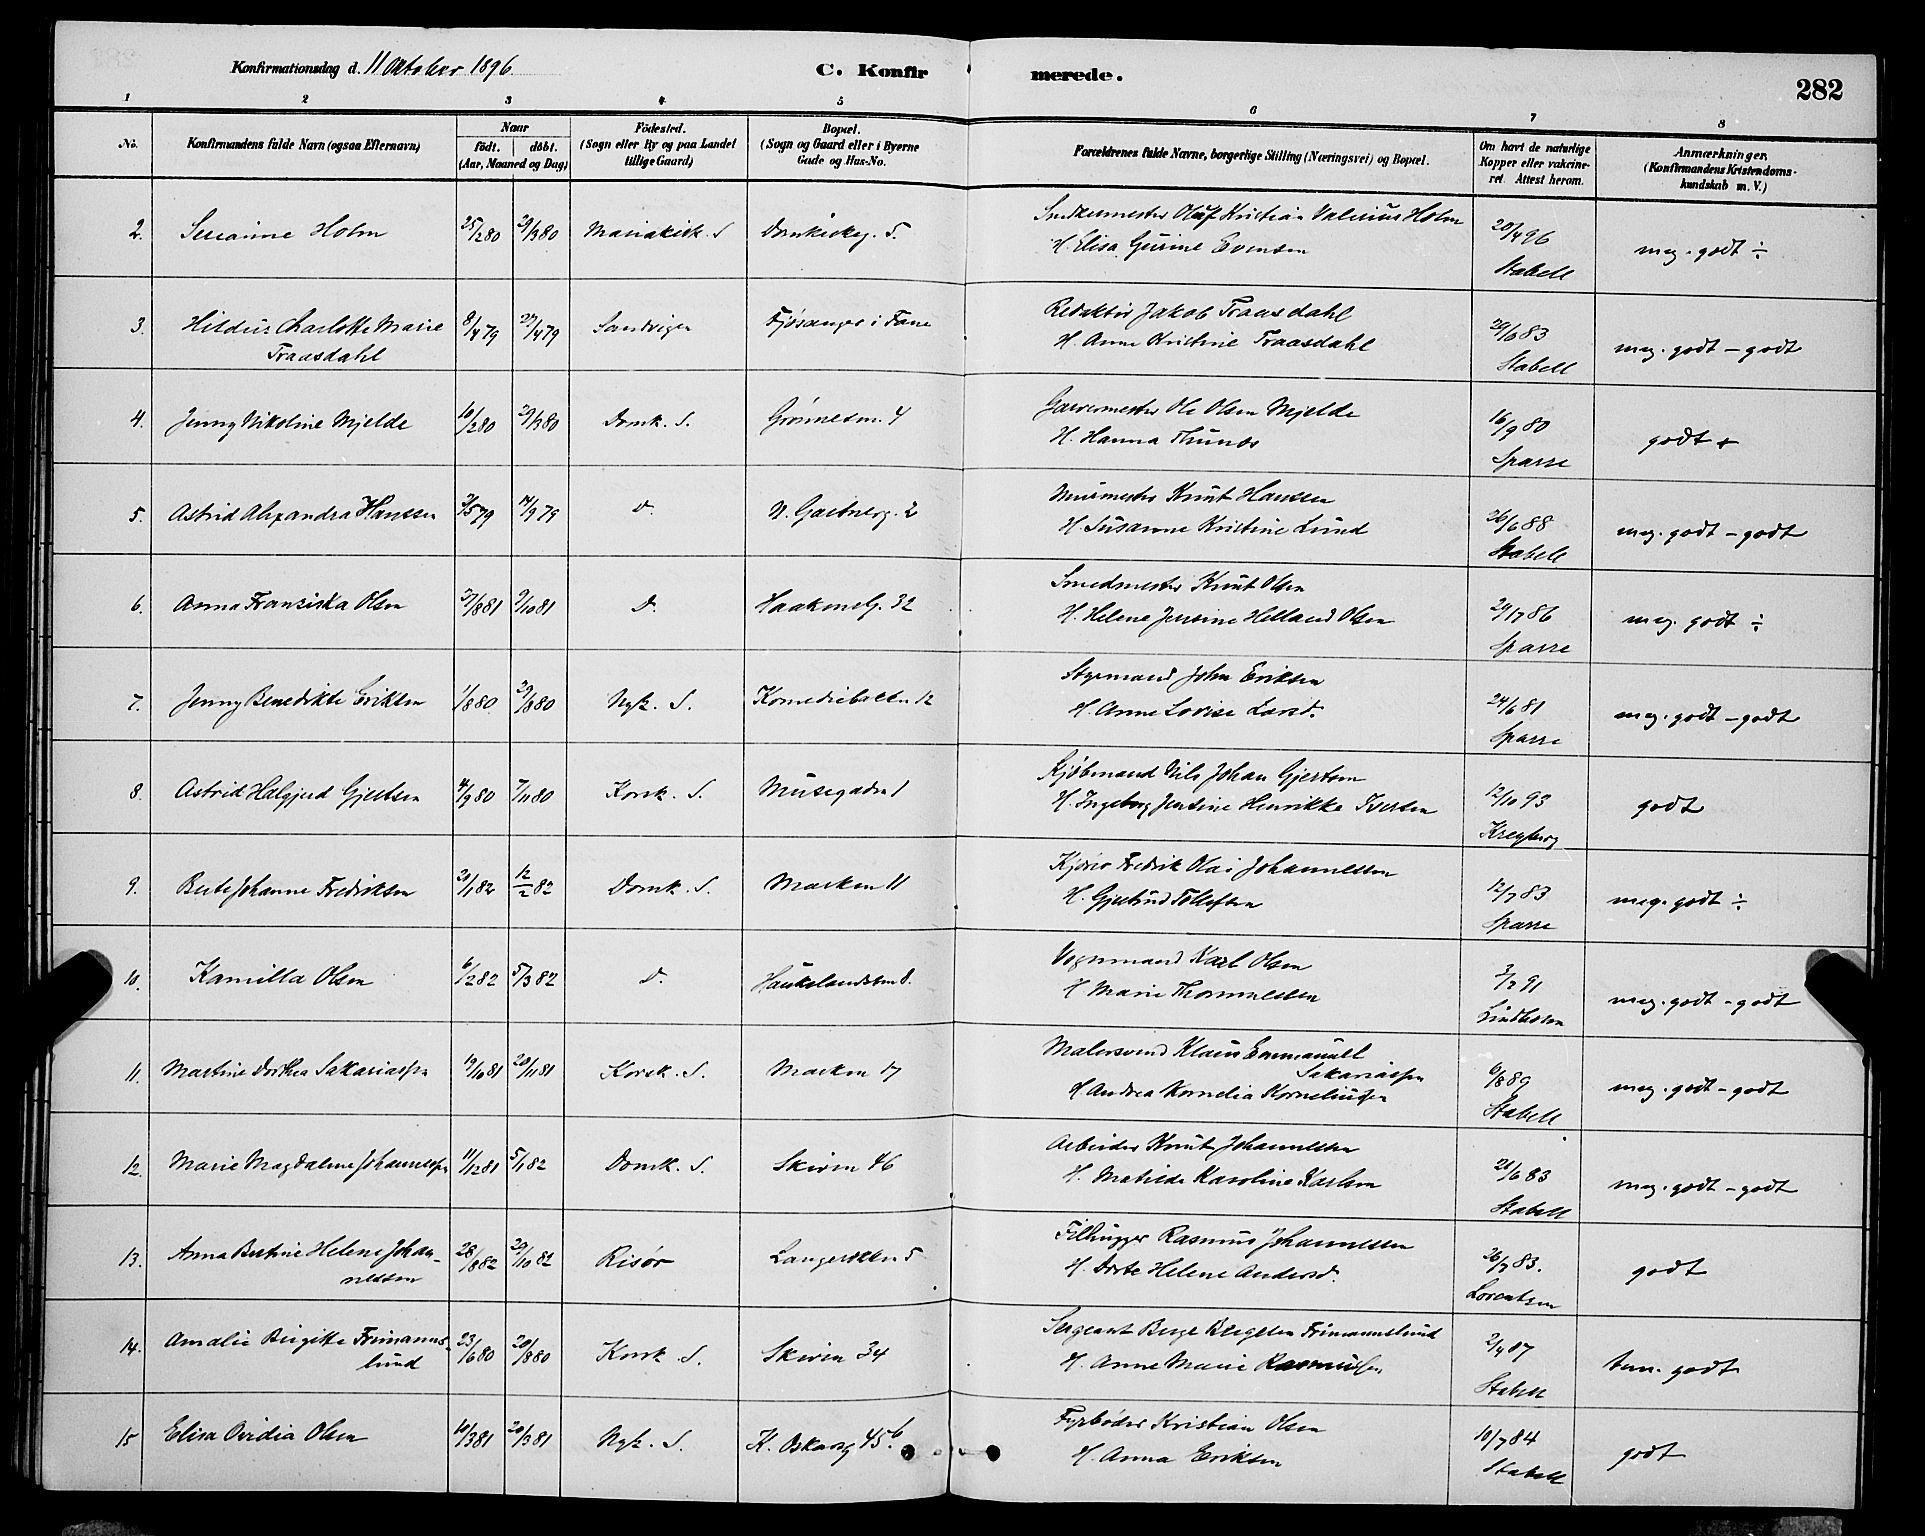 Konfirmationsdag d. 11 Oktober 1896
C. Konfir merede.
282
1 2 3 4. 5 6 7 8
No.
Konfirmandens fulde Navn (ogsaa Efternavn)
Naar
födt. döbt.
(Aar, Maaned og Dag)
Födested.
(Sogn eller By og paa Landet tillige Gaard)
Bopæl.
(Sogn og Gaard eller i Byerne Gade og Hus-No.
Forældrenes fulde Navne, borgerlige Stilling (Næringsvei) og Bopæl.
Om havt de naturlige Kopper eller vakcineret. Attest herom.
Anmærkninger.
(Konfirmandens Kristendomskundskab m. V.)
2. Serianne Holm 25/2 80 29/3 80 Mariakirk. S Domkirkeg. 5. Snedkermester Oluf Kristian Valerius Holm 20/4 96
H. Elisa Gurine Evensen Stabell meg. godt ÷
3. Hildur Charlotte Marie 8/4 79 27/4 79 Sandvigen Fjösanger i Fane Redaktör Jakob Traasdahl 29/6 83
Traasdahl H. Anne Kristine Traasdahl Stabell meg. godt - godt
4. Jenny Nikoline Mjelde 10/2 80 29/3 80 Domk. S. Grönnesm. 4 Garvermester Ole Olsen Mjelde 16/9 80
H. Hanna Sparre godt +
5. Astrid Alexandra Hanssen 3/5 79 14/9 79 D. N. Gartnerg. 2 Murmester Knut Hanssen 26/6 88
H. Susanne Kristine Lund Stabell meg. godt - godt
6. Anna Fransiska Olsen 27/8 81 9/10 81 D. Haakonsg. 32 Smedmester Knut Olsen 24/7 86
H. Helene Jensine Helland Olsen Sparre meg. godt ÷
7. Jenny Benedikte Eriksen 1/8 80 29/8 80 Nyk. S. Komediebakken 12 Styrmand John Eriksen 24/6 81
H. Anne Lovise Larsd. Sparre meg. godt - godt
8. Astrid Halgjerd Gjertsen 4/9 80 7/11 80 Korsk. S. Musegaden 1 Kjöbmand Nils Johan Gjertsen 12/10 93
H. Ingeborg Jentine Henrikke Iversen godt
9. Berte Johanne Fredriksen 20/1 82 12/2 82 Domk. S. Marken 11 Kjörer Fredrik Olai Johannessen 12/7 83
H. Gjertrud Tollefsen Sparre meg. godt ÷
10. Kamilla Olsen 6/2 82 5/3 82 D. Vognmand Karl Olsen 3/7 91
H Marie meg. godt - godt
11. Martine Dorthea Sakariassen 19/10 81 20/11 81 Korsk. S. Marken 17 Malersvend Klaus Emmanuel
Sakariassen 6/8 89
H Andrea Kornelia Korneliussen Stabell meg. godt - godt
12. Marie Magdalene Johannessen 11/12 81 5/1 82 Domk. S. Skiven 46 Arbeider Knut Johannessen 21/6 83
H. Matilde Karoline Karlsen Stabell meg. godt - godt
13. Anna Bertine Helene Johan- 28/8 82 29/10 82 Risör Langerekken 5 Filhugger Rasmus Johannessen 26/7 83.
nessen H. Dorte Helene Andersd. Lorentsen godt
14. Amalie Birgitte Frimanns- 23/6 80 20/8 80 Korsk S. Skiven 34 Sergeant Berge Bergesen Frimannslund 2/4 87
lund H. Anne Marie Rasmussen Stabell tem. godt
15 Elisa Ovidia Olsen 10/3 81 20/3 81 Nyk. S. K. Oskarsg 45 b. Fyrböder Kristian Olsen 10/7 84
H. Anna Eriksen Stabell godt